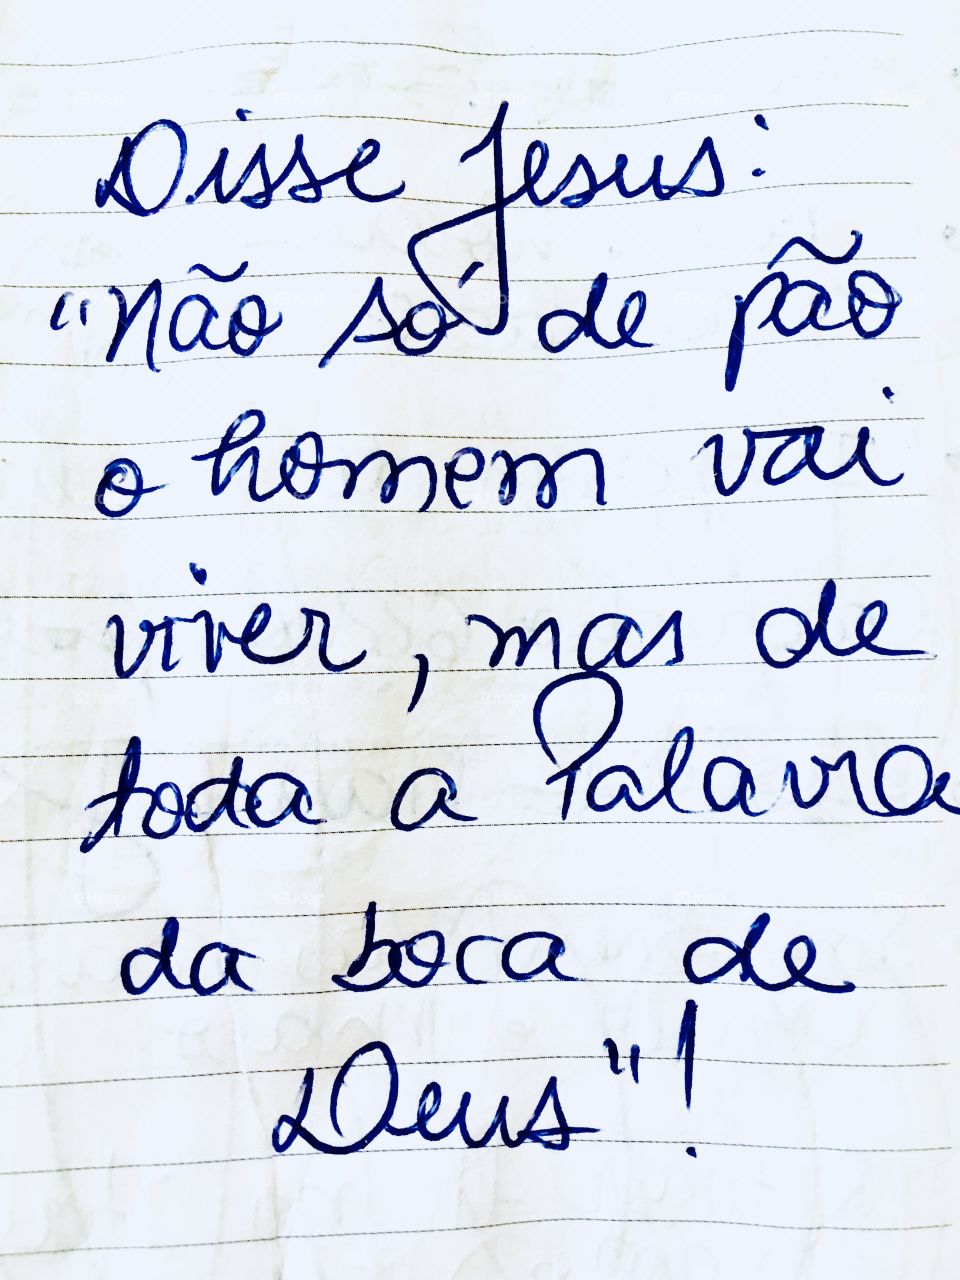 Disse Jesus:
"Não só de pão
o homem vai
viver, mas de
toda a Palavra
da boca de
Deus"!